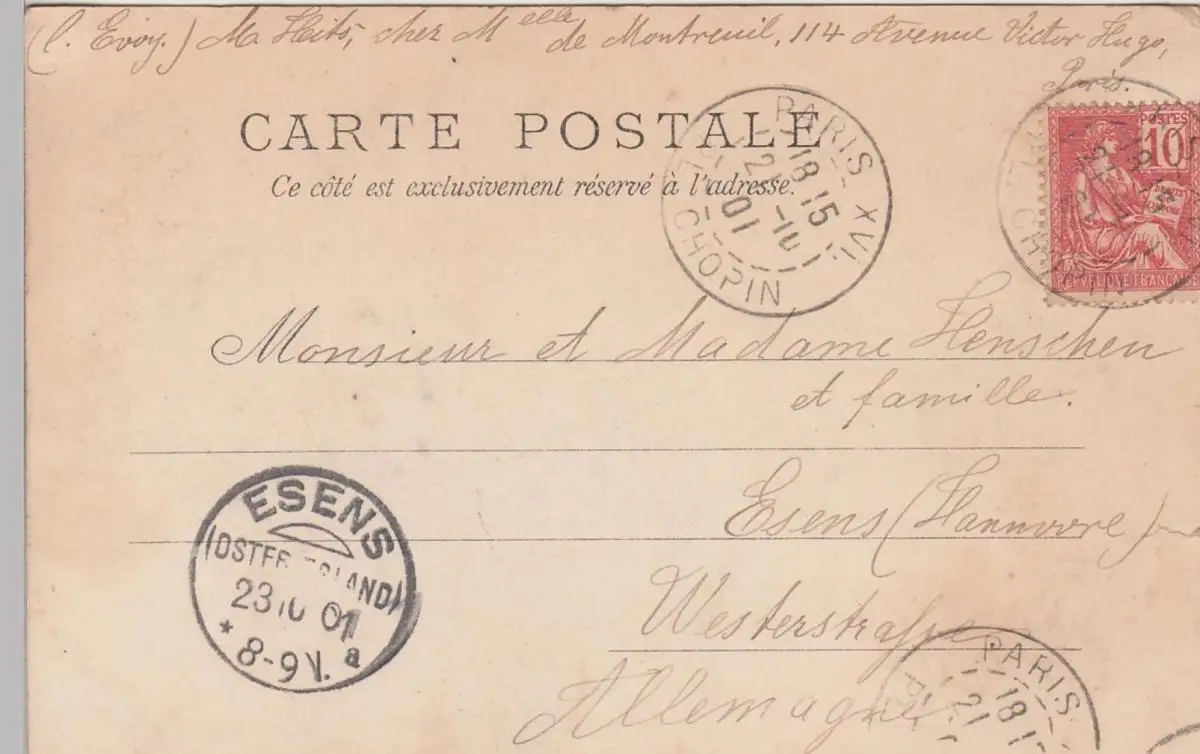 (l. Evoy.) M. Heits, chez Melle de Montreuil, 114 Avenue Victor Hugo,
Paris.
CARTE POSTALE
Ce côté est exclusivement réservé à l'adresse.
PARIS XVI
18 15
21 -10
01
CHOPIN
POSTES
10
REPUBLIQUE FRANÇAISE
Monsieur et Madame Henschen
et famille.
Esens (Hannovre)
Westerstraße
Allemagne
ESENS
(OSTFRIESLAND)
23 10 01
* 8-9 V. a
PARIS
18 1
21